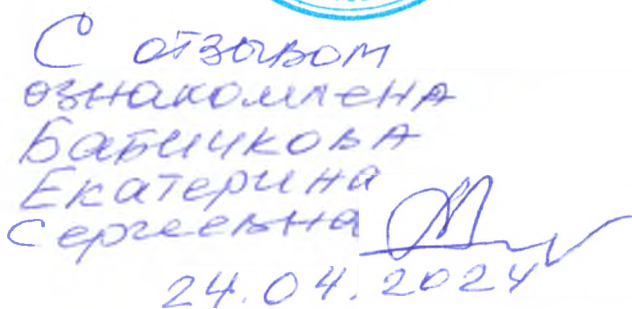 С отзывом
ознакомлена
Бабичкова
Екатерина
Сергеевна
24.04.2024